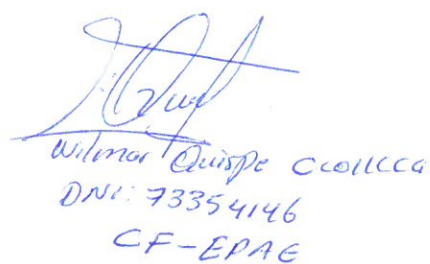 Wilmar Quispe Ccollcca
DNI: 73354146
CF-EPAE